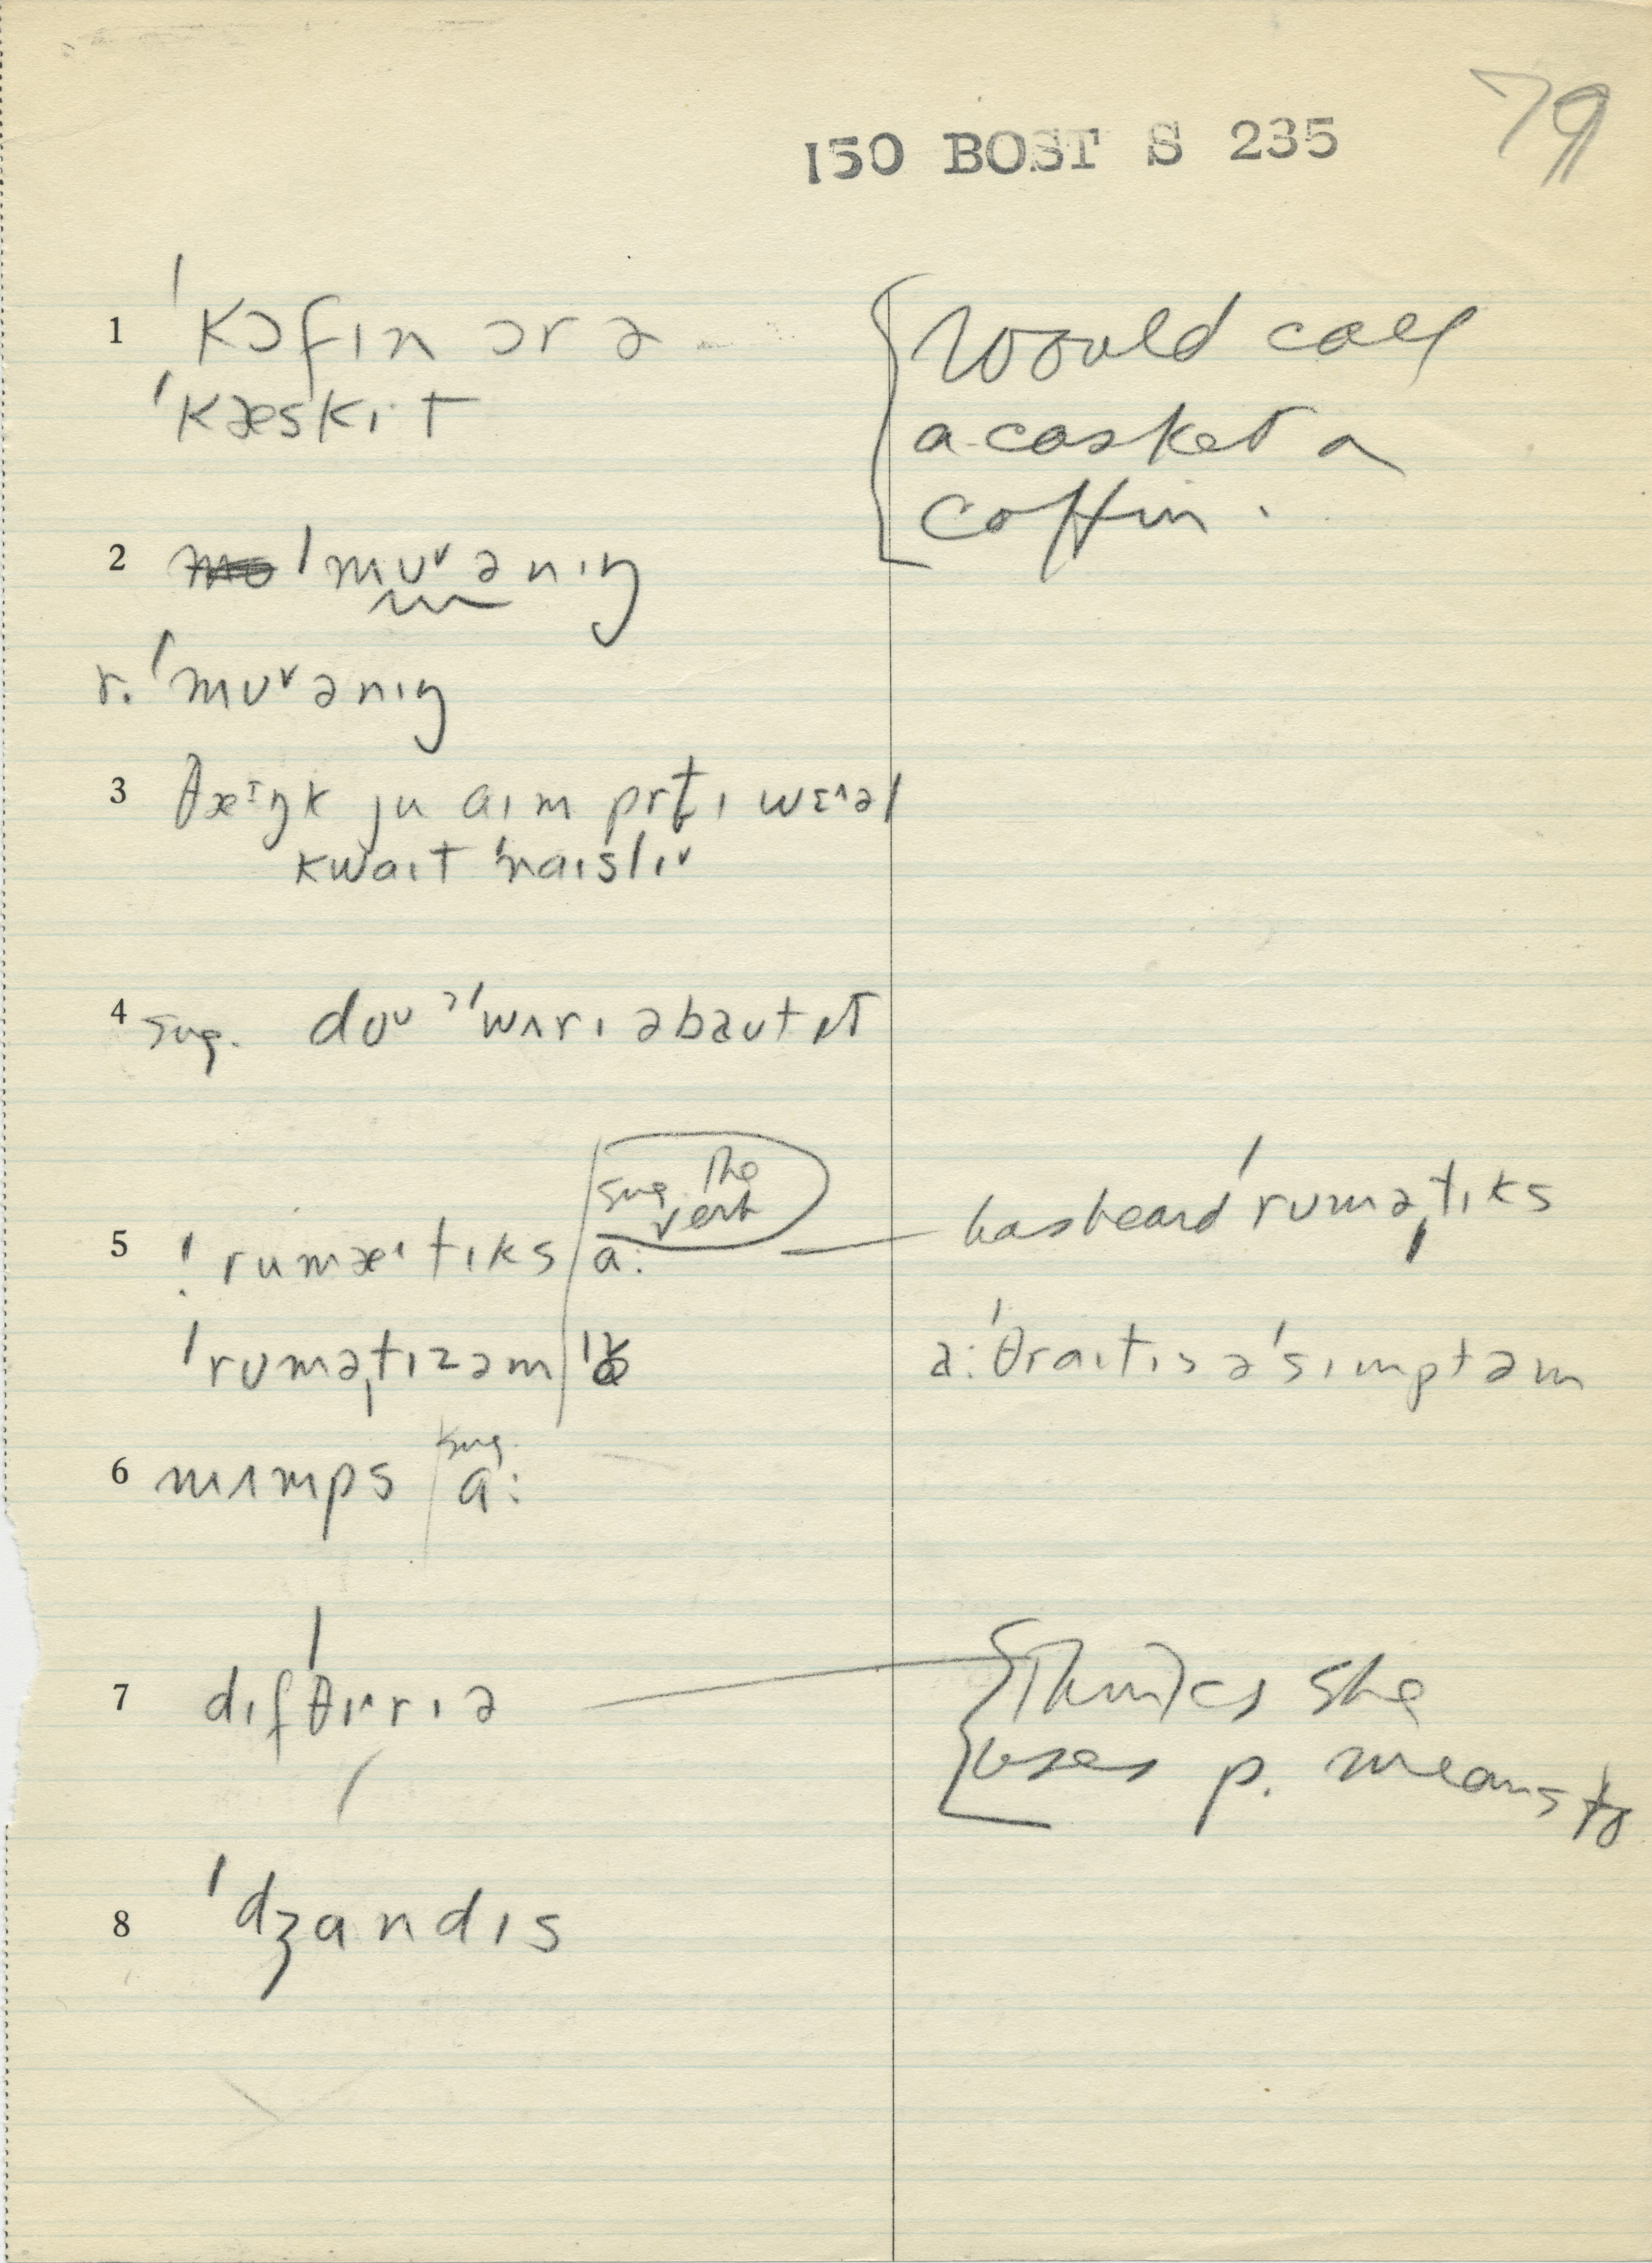 79
150 BOST S 235
1 ˈkɔfɪn ɔr ə
ˈkæskɪt
Would call
a casket a
coffin.
2 ˈmʊᵛənɪŋ
r. ˈmʊᵛənɪŋ
3 θæᶦŋk ju aɪm prt̬ɪ wɛ^əl
kwaɪt ˈnaɪslɪᵛ
4 sug. doᶷ ˀˈwʌrɪ əbaʊt ɪt
sug. the
verb
5 ˈrumæᶦtɪks a: has heard ˈruməˌtɪks
ˈruməˌtɪzəm
a:ˈθraɪtɪs əˈsɪmptəm
sug.
6 mʌmps a:
7 dɪfˈθɪ^rɪə
Thinks she
uses p. means to
8 ˈdʒandɪs